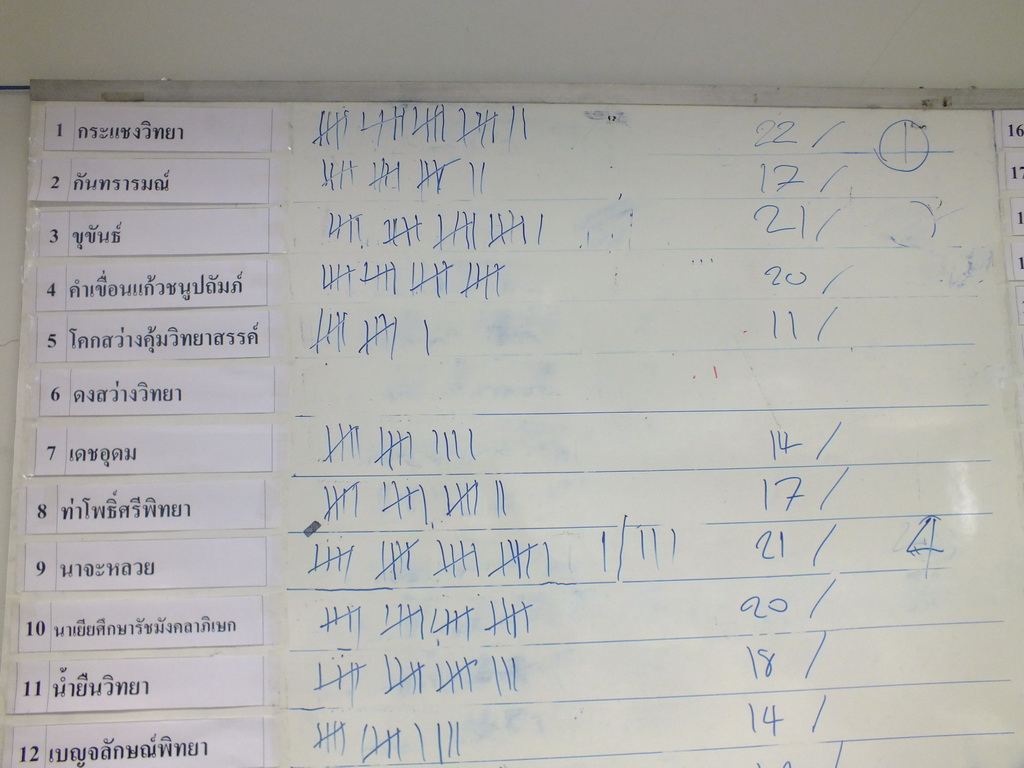 1 กระแชงวิทยา 22 /
2 กันทรารมณ์ 17 /
3 ขุขันธ์ 21 /
4 คำเขื่อนแก้วชนูปถัมภ์ 20 /
5 โคกสว่างคุ้มวิทยาสรรค์ 11 /
6 ดงสว่างวิทยา
7 เดชอุดม 14 /
8 ท่าโพธิ์ศรีพิทยา 17 /
9 นาจะหลวย 21 / 4
10 นาเยียศึกษารัชมังคลาภิเษก 20 /
11 น้ำยืนวิทยา 18 /
12 เบญจลักษณ์พิทยา 14 /
16
17